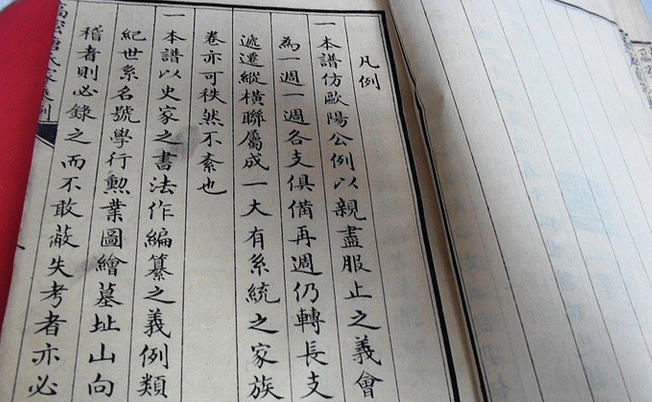 凡例
一本譜仿歐陽公例以親盡服止之義會
為一週一週各支俱備再週仍轉長支
遞遷縱橫聯屬成一大有系統之家族
卷亦可秩然不紊也
一本譜以史家之書法作編纂之義例類
紀世系名號學行勲業圖繪墓址山向
稽者則必錄之而不敢蔽失考者亦必